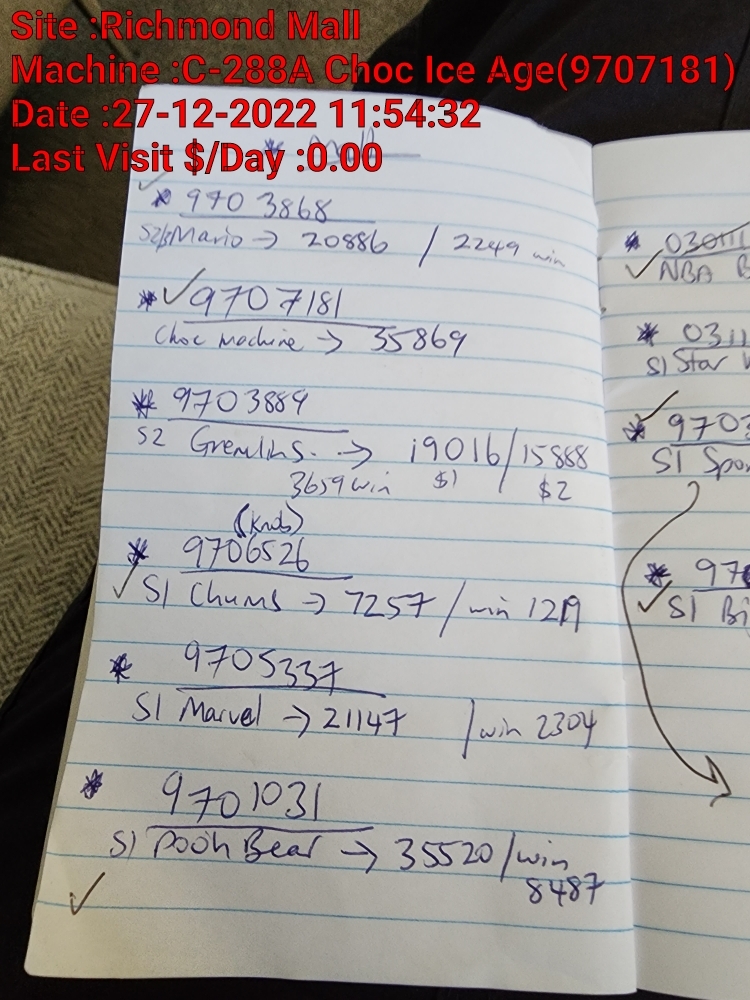 Site :Richmond Mall
Machine :C-288A Choc Ice Age(9707181)
Date :27-12-2022 11:54:32
Last Visit $/Day :0.00
* Mall
* 9703868
Mario → 20886 / 2249 win
* ✓ 9707181
Choc Machine → 35869
* 9703889
S2 Gremlins. → 19016/15888
3659 win $1 $2
(Knob)
* 9706526
✓ S1 Chums → 7257 / win
* 9705337
S1 Marvel → 21147 / win 2304
* 9701031
S1 Pooh Bear → 35520 / win
8487
✓
* 03011
✓ NBA B
* 0311
S1 Star
✓
* 9703
S1 Spo
* 970
✓ S1 Bi